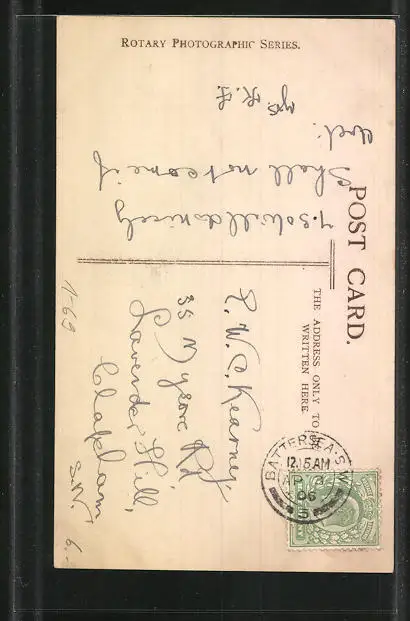 ROTARY PHOTOGRAPHIC SERIES.
POST CARD.
THE ADDRESS ONLY TO BE
WRITTEN HERE
7.30 will do nicely
Shall not come if
wet.
Yrs R.F.
P. W. C. Kearney
35 Mysore Rd
Lavender Hill,
Clapham
S.W.
BATTERSEA. S.W.
12.15 AM
AP 3
06
5